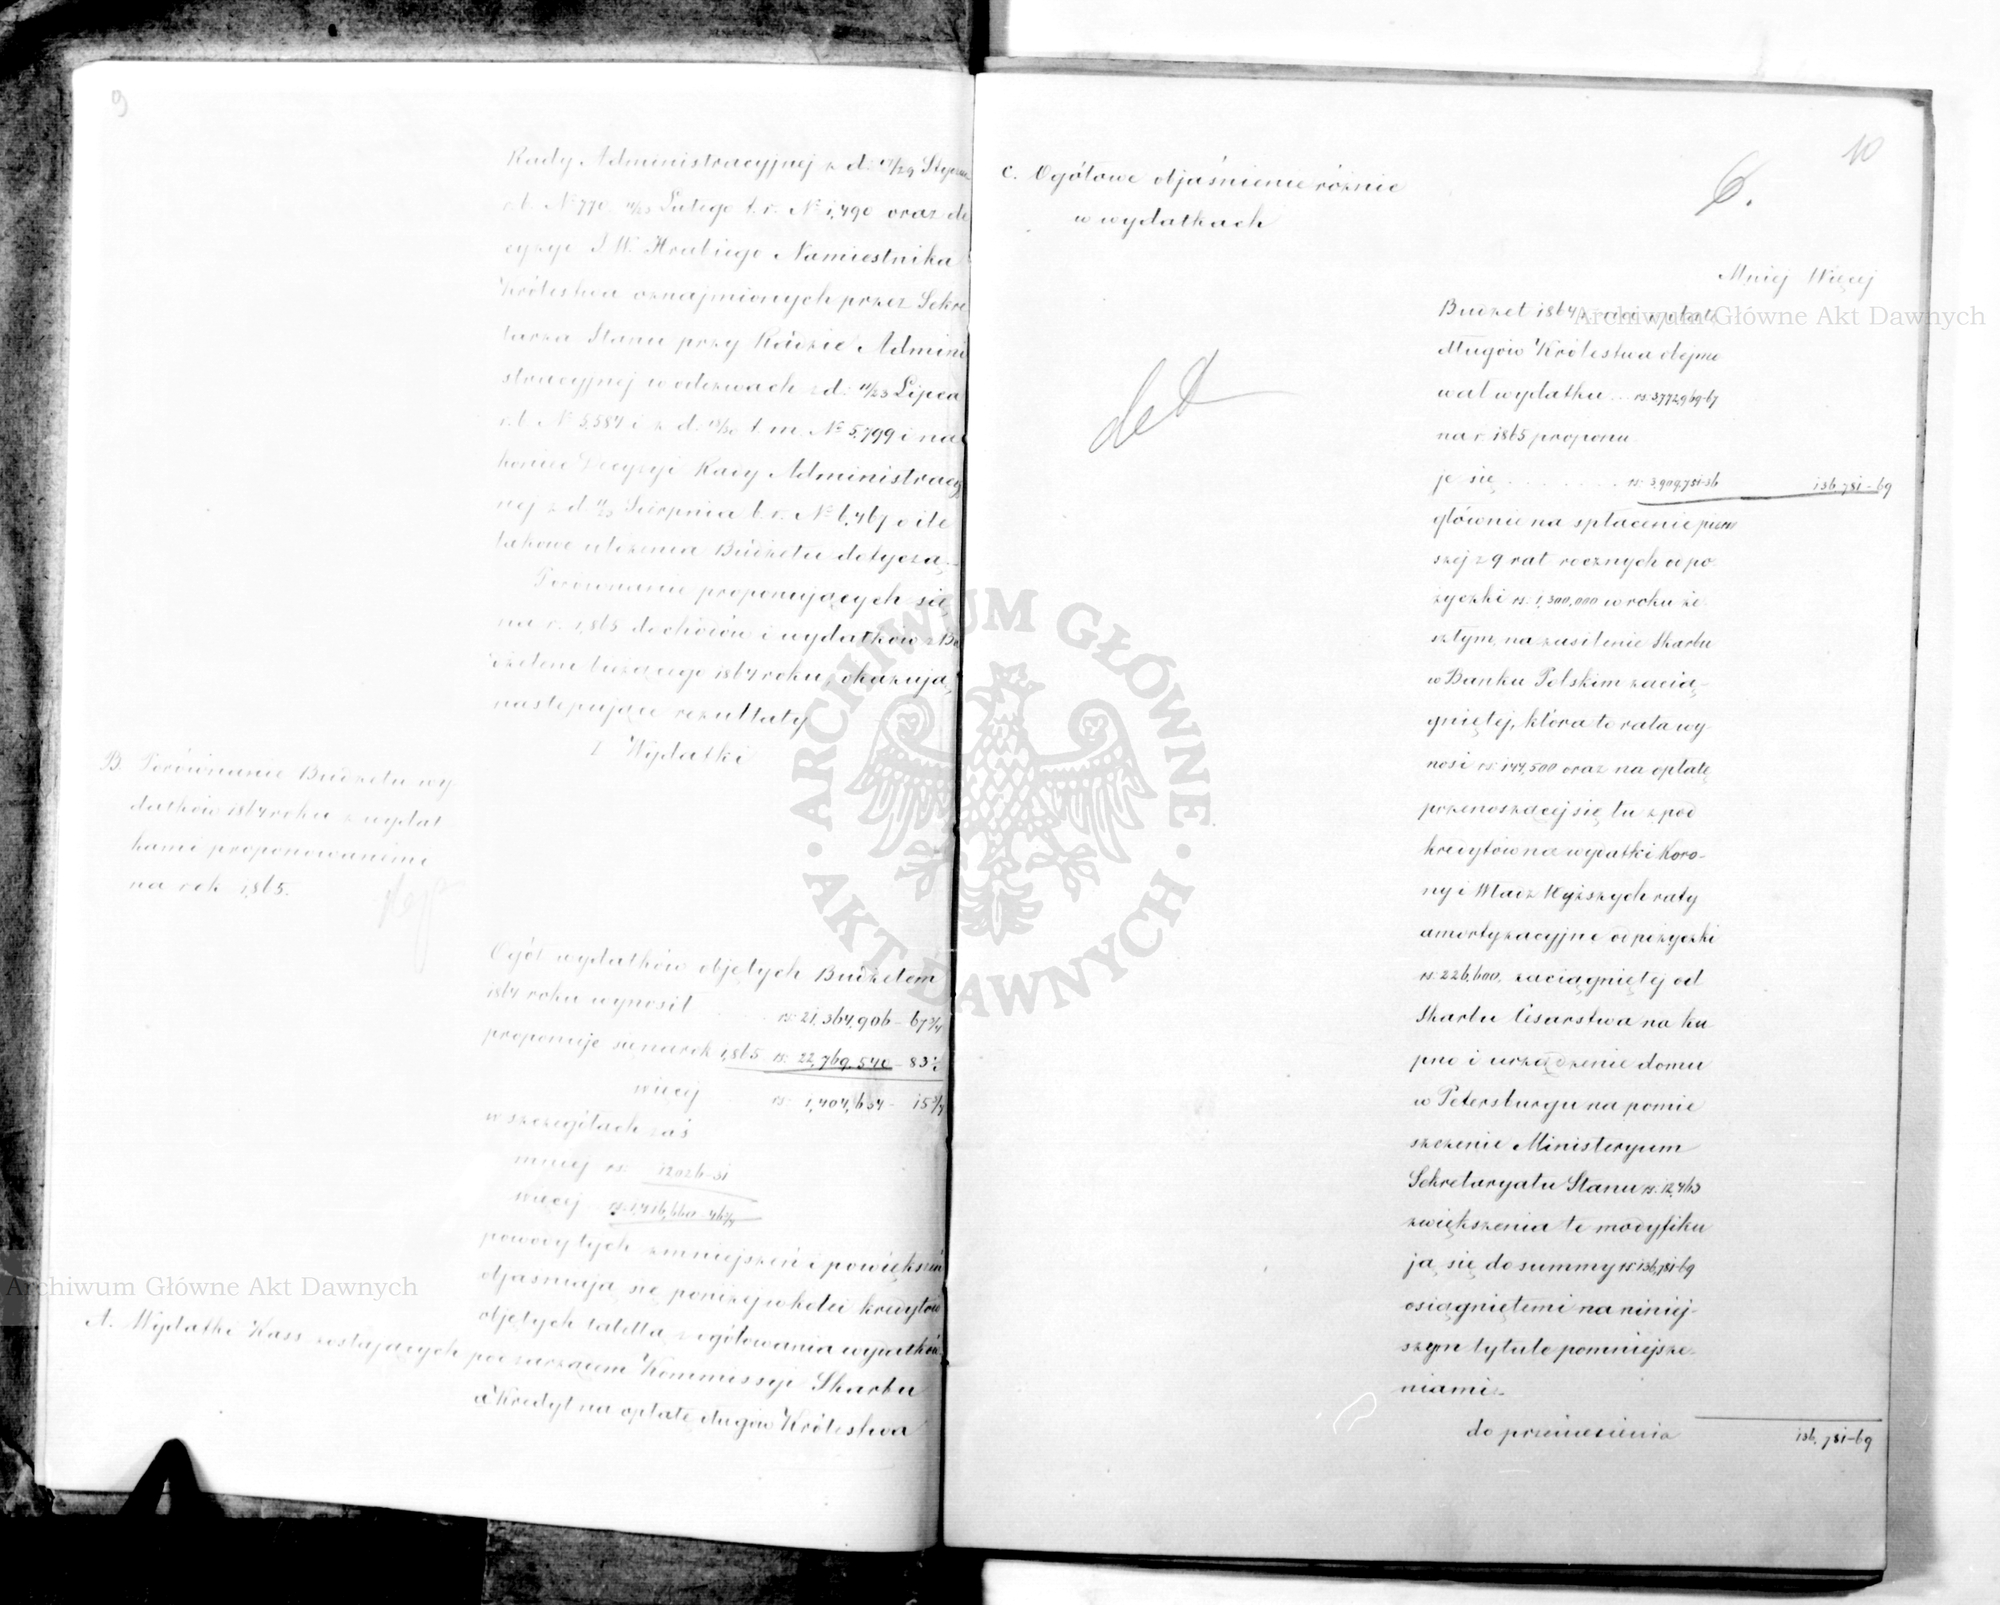 9
Rady Administracyjnej z d: 17/29 Stycznia
r.b. № 770, 11/23 Lutego t.r. № 1,490 oraz de
cyzye J W. Hrabiego Namiestnika
Królestwa oznajmionych przez Sekre
tarza Stanu przy Radzie Admini
stracyjnej w odezwach z d: 11/23 Lipca
r.b. № 5,584 i z d. 18/30 t.m. № 5,799 i na
koniec Decyzyi Rady Administracyj
nej z d 11/23 Sierpnia b.r. № 6,467 o ile
takowe ułożenia Budżetu dotyczą.
Porównanie proponujących się
na r. 1,865 dochodów i wydatków z Bu
dżetem bieżącego 1864 roku, okazują
następujące rezultaty
I Wydatki
B. Porównanie Budżetu wy
datków 1864 roku z wydat
kami proponowanemi
na rok 1,865.
Ogół wydatków objętych Budżetem
1864 roku wynosił rs: 21,364,906 – 67 3/4
proponuje się na rok 1,865 rs: 22,769,540 – 83 1/2
więcej rs: 1,404,634 – 15 3/4
w szczegółach zaś
mniej rs: 12026–31
więcej rs: 1,416,660–46 3/4
powody tych zmniejszeń i powiększeń
objaśniają się poniżej w kolei kredytów
objętych tabellą z ogółowania wydatków
A. Wydatki Kass zostających pod zarządem Kommissyi Skarbu
a Kredyt na opłatę długów Królestwa
10
6.
C. Ogółowe objaśnienie różnic
w wydatkach
Mniej Więcej
Budżet 1864 r. na opłatę
długów Królestwa obejmo
wał wydatku ... rs: 3,772,969–67
na r. 1865 proponu
je się . . . . . . . . rs: 3,909,751–36 136,781–69
głównie na spłacenie pierw
szej z 9 rat rocznych od po
życzki rs: 1,300,000 w roku ze
szłym, na zasilenie Skarbu
w Banku Polskim zacią–
gniętej, która to rata wy
nosi rs: 144,500 oraz na opłatę
przenoszącej się tu z pod
kredytów na wydatki Koro–
ny i Władz Wyższych raty
amortyzacyjne od pożyczki
rs: 226,600, zaciągniętej od
Skarbu Cesarstwa na ku
pno i urządzenie domu
w Petersburgu na pomie
szczenie Ministeryum
Sekretaryatu Stanu rs: 12,463
zwiększenia te modyfiku
ją się do summy rs: 136,781–69
osiągniętemi na niniej–
szym tytule pomniejsze–
niami.
do przeniesienia 136,781–69
Archiwum Główne Akt Dawnych
Archiwum Główne Akt Dawnych
· ARCHIWUM GŁÓWNE · AKT DAWNYCH